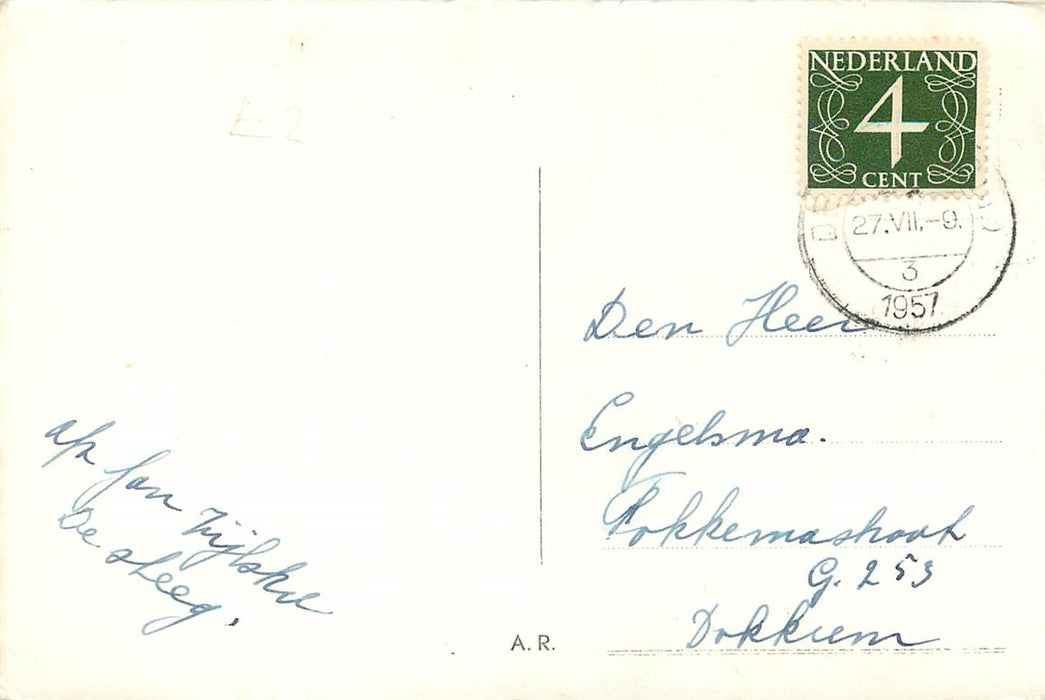 E2
NEDERLAND
4
CENT
27.VII.-9.
3
1957
Den Heer
Engelsma.
Fokkemastraat
G. 253
Dokkum
afz Jan Zijlstra
De steeg.
A.R.